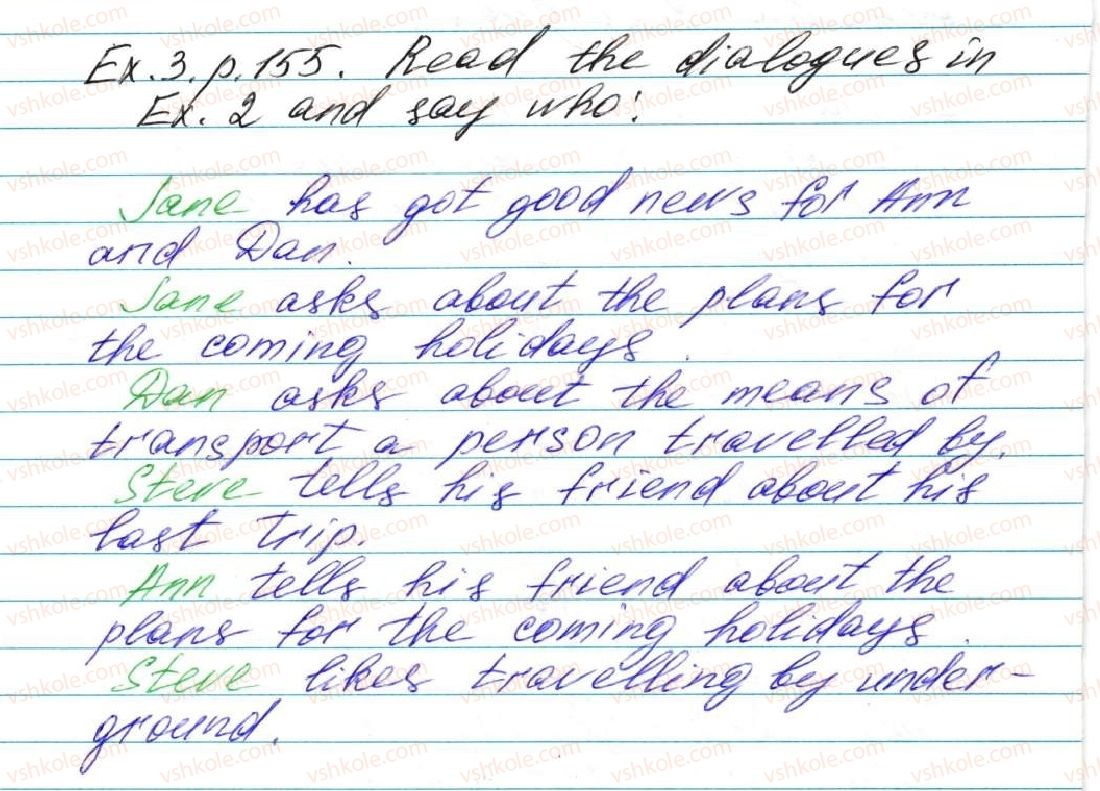 Ex. 3, p. 155. Read the dialogues in
Ex. 2 and say who:
Jane has got good news for Ann
and Dan.
Jane asks about the plans for
the coming holidays.
Dan asks about the means of
transport a person travelled by.
Steve tells his friend about his
last trip.
Ann tells his friend about the
plans for the coming holidays.
Steve likes travelling by under-
ground.